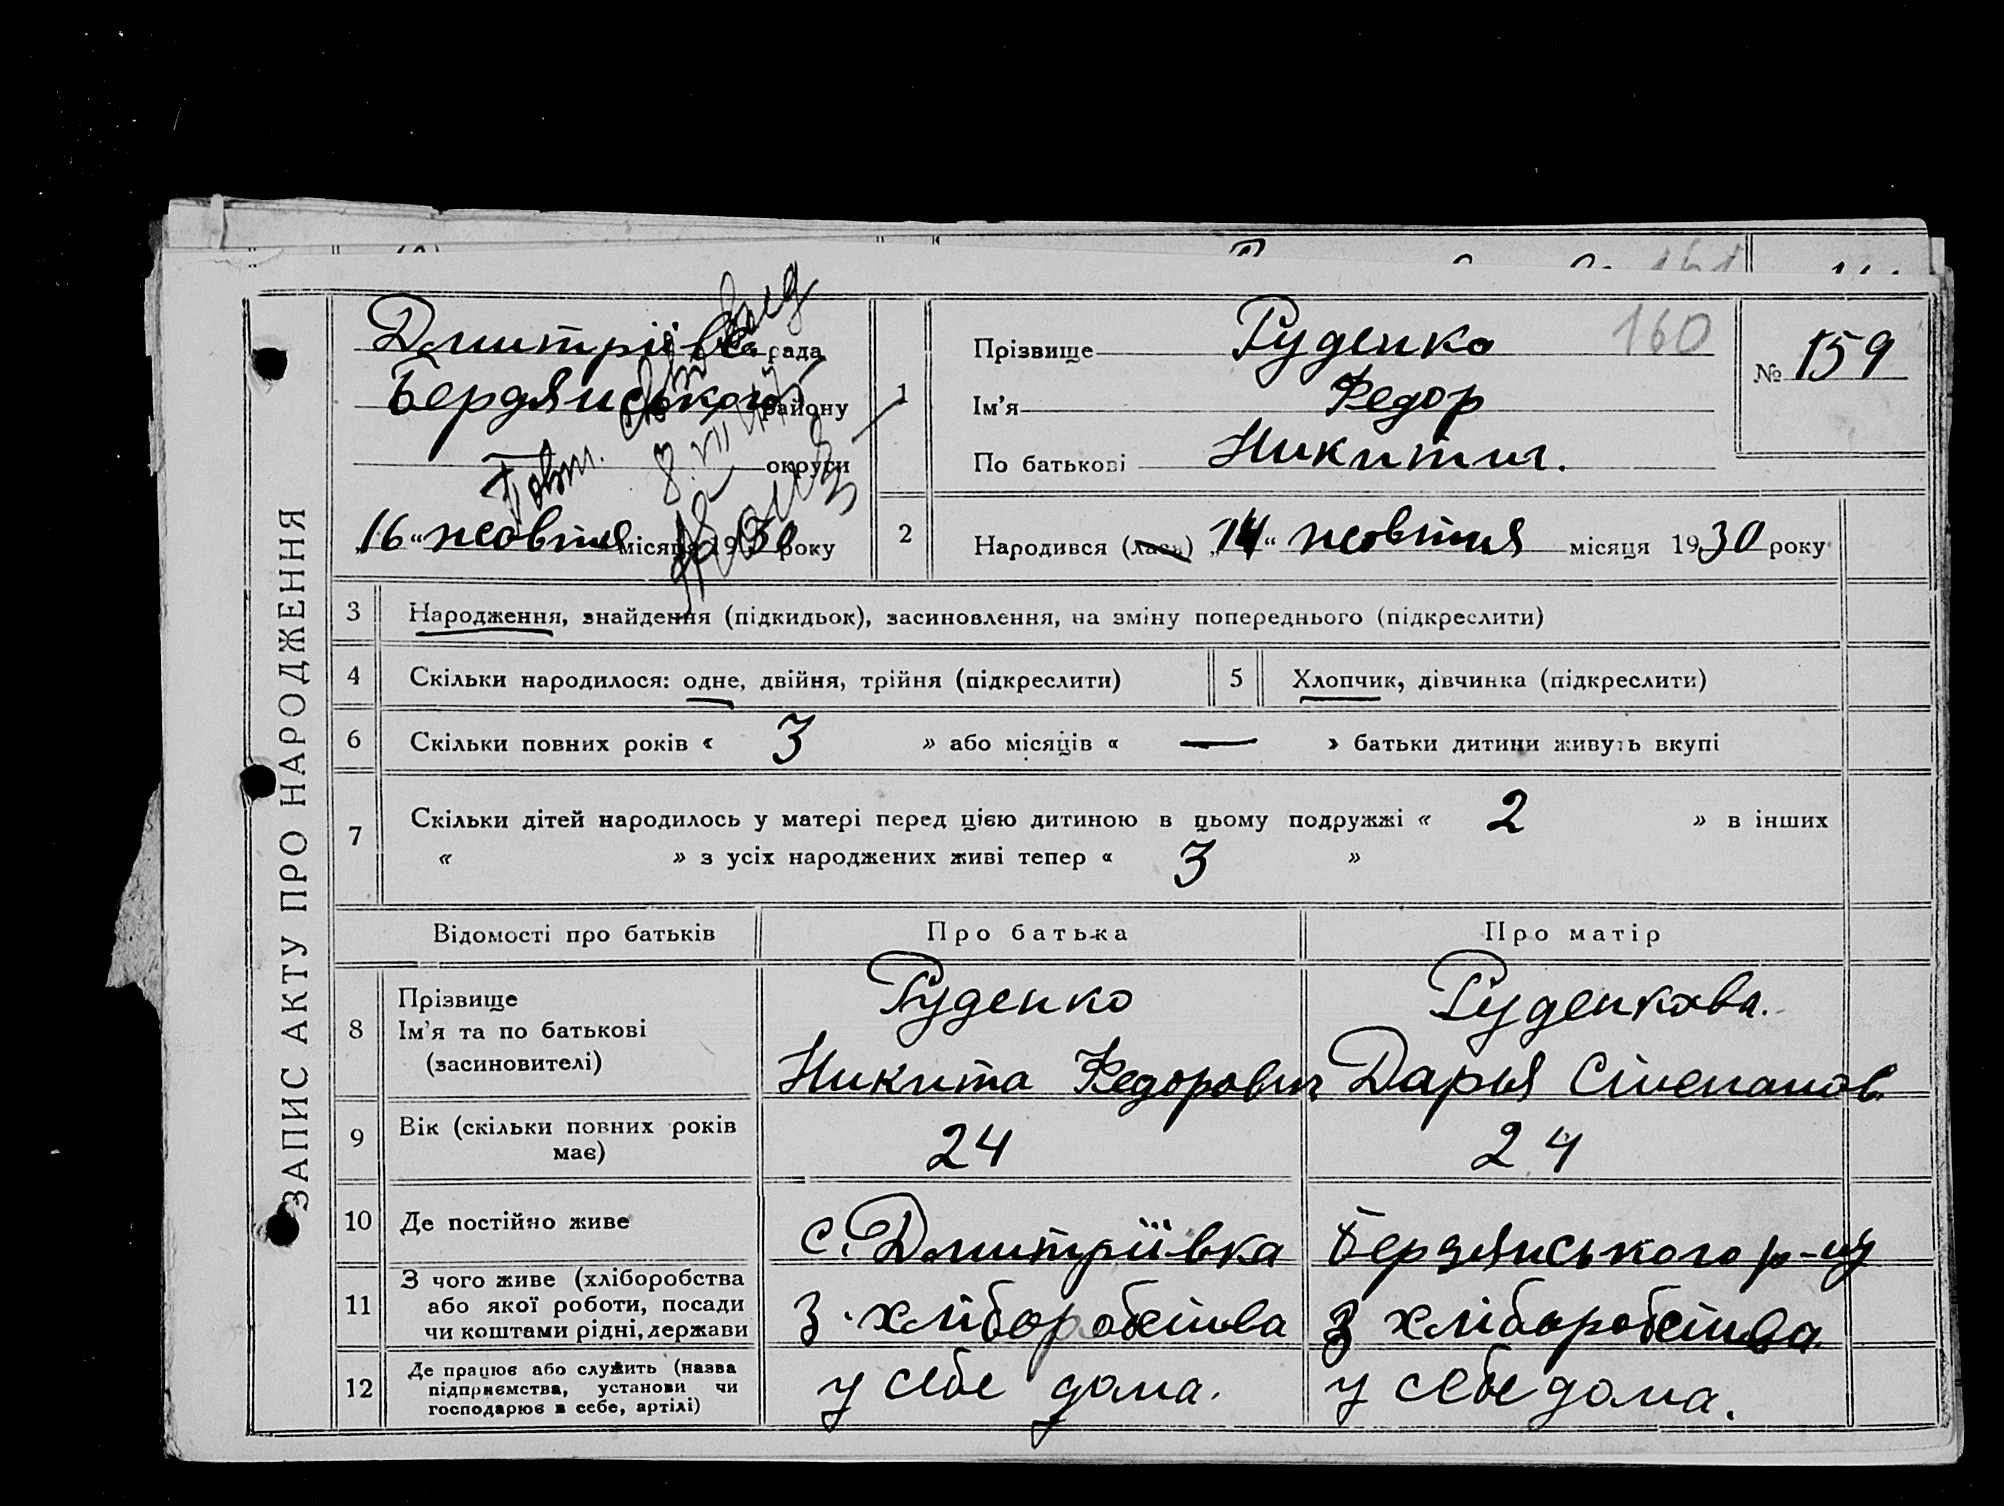 ЗАПИС АКТУ ПРО НАРОДЖЕННЯ
161
Дмитріївс рада
Бердянського району
округи
Повт. свід. вид
8. VII
"16" жовтня місяця 1930 року
1
Прізвище Руденко
160
№ 159
Ім'я Федор
По батькові Никитич.
2
Народився (лася) "14" жовтня місяця 1930 року
3 Народження, знайдення (підкидьок), засиновлення, на зміну попереднього (підкреслити)
4 Скільки народилося: одне, двійня, трійня (підкреслити) 5 Хлопчик, дівчинка (підкреслити)
6 Скільки повних років « 3 » або місяців « — » батьки дитини живуть вкупі
7 Скільки дітей народилось у матері перед цією дитиною в цьому подружжі « 2 » в інших
« » з усіх народжених живі тепер « 3 »
Відомості про батьків Про батька Про матір
8 Прізвище Руденко Руденкова.
Ім'я та по батькові Никита Федорович Дарья Степанов.
(засиновителі)
9 Вік (скільки повних років 24 24
має)
10 Де постійно живе с. Дмитріївка Бердянського р-ну
11 З чого живе (хліборобства
або якої роботи, посади З хліборобства З хліборобства
чи коштами рідні, держави
12 Де працює або служить (назва у себе дома. у себе дома.
підприємства, установи чи
господарює в себе, артілі)